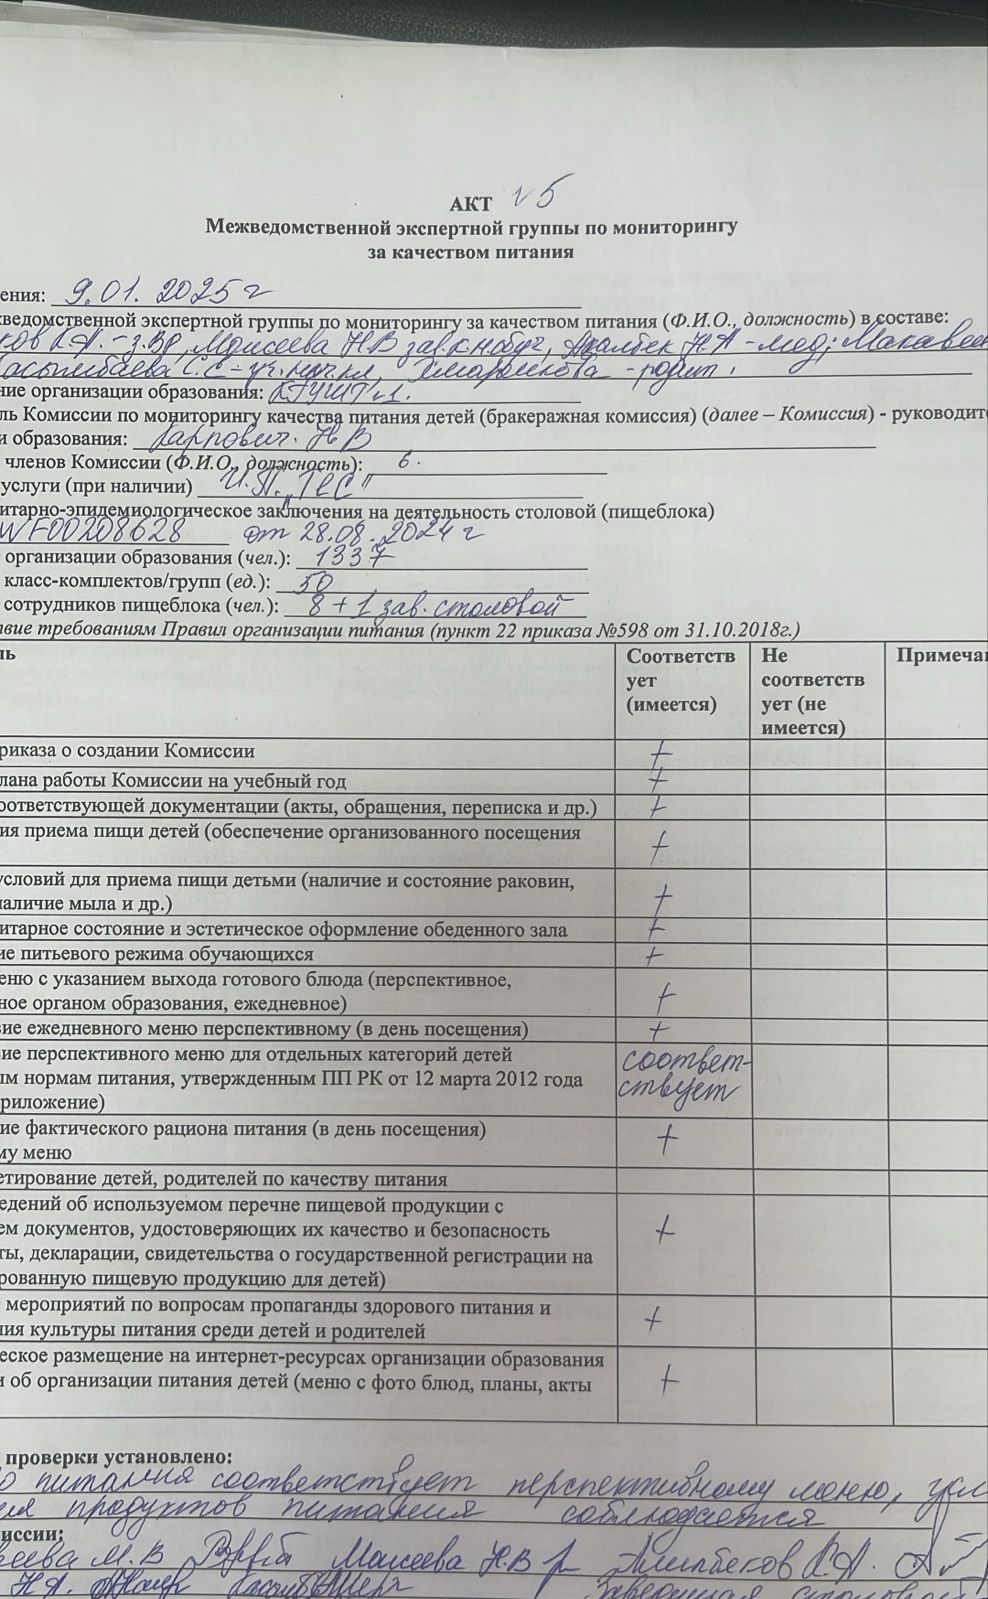 АКТ №5
Межведомственной экспертной группы по мониторингу
за качеством питания
ения: 9.01.2025г
ведомственной экспертной группы по мониторингу за качеством питания (Ф.И.О., должность) в составе:
ков К.А. - з.ВР, Моисеева Н.В зав.к.н.обуч, Н.А - мед; Макавеи
Касымбаева С.С - - родит.
ние организации образования: КГУШГ№1.
ль Комиссии по мониторингу качества питания детей (бракеражная комиссия) (далее – Комиссия) - руководите
и образования: Карпович Н В
членов Комиссии (Ф.И.О., должность): 6.
услуги (при наличии) И.П. "ТЕС"
итарно-эпидемиологическое заключения на деятельность столовой (пищеблока)
WF00208628 от 28.08.2024г
организации образования (чел.): 1337
класс-комплектов/групп (ед.): 50
сотрудников пищеблока (чел.): 8 + 1 зав. столовой
твие требованиям Правил организации питания (пункт 22 приказа №598 от 31.10.2018г.)
ль Соответств Не Примечан
ует соответств
(имеется) ует (не
имеется)
риказа о создании Комиссии +
лана работы Комиссии на учебный год +
оответствующей документации (акты, обращения, переписка и др.) +
ия приема пищи детей (обеспечение организованного посещения +
условий для приема пищи детьми (наличие и состояние раковин,
наличие мыла и др.) +
итарное состояние и эстетическое оформление обеденного зала +
ие питьевого режима обучающихся +
еню с указанием выхода готового блюда (перспективное,
ное органом образования, ежедневное) +
вие ежедневного меню перспективному (в день посещения) +
ие перспективного меню для отдельных категорий детей соответ-
ым нормам питания, утвержденным ПП РК от 12 марта 2012 года ствует
риложение)
ие фактического рациона питания (в день посещения) +
му меню
етирование детей, родителей по качеству питания
едений об используемом перечне пищевой продукции с
ем документов, удостоверяющих их качество и безопасность +
ты, декларации, свидетельства о государственной регистрации на
рованную пищевую продукцию для детей)
мероприятий по вопросам пропаганды здорового питания и +
ния культуры питания среди детей и родителей
еское размещение на интернет-ресурсах организации образования
и об организации питания детей (меню с фото блюд, планы, акты +
проверки установлено:
о питания соответствует перспективному меню, усл
ия продуктов питания соблюдается
миссии:
веева М.В Моисеева Н.В К.А.
Н.А. Заведующая столовой